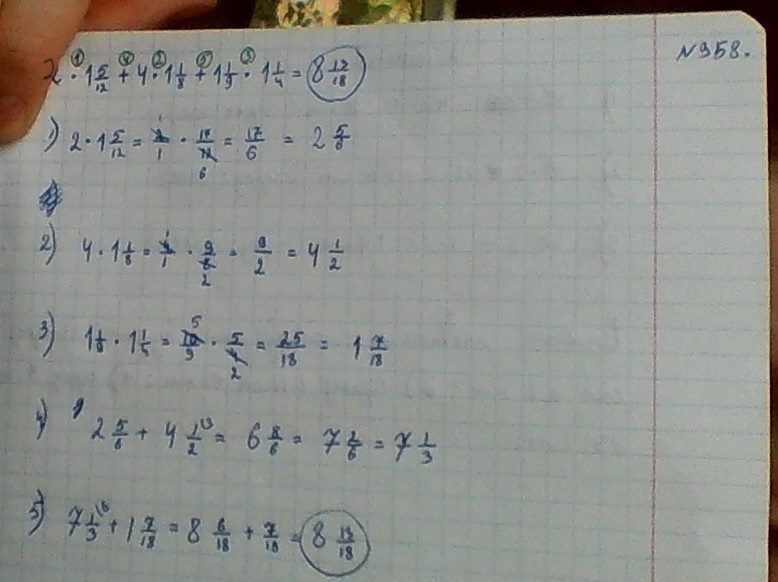 №958.
2 · 1 5/12 + 4 · 1 1/8 + 1 1/9 · 1 1/4 = 8 13/18
1) 2 · 1 5/12 = 2/1 · 17/12 = 17/6 = 2 5/6
2) 4 · 1 1/8 = 4/1 · 9/8 = 9/2 = 4 1/2
3) 1 1/9 · 1 1/4 = 10/9 · 5/4 = 25/18 = 1 7/18
4) 2 5/6 + 4 1/2 = 6 8/6 = 7 2/6 = 7 1/3
5) 7 1/3 + 1 7/18 = 8 6/18 + 7/18 = 8 13/18